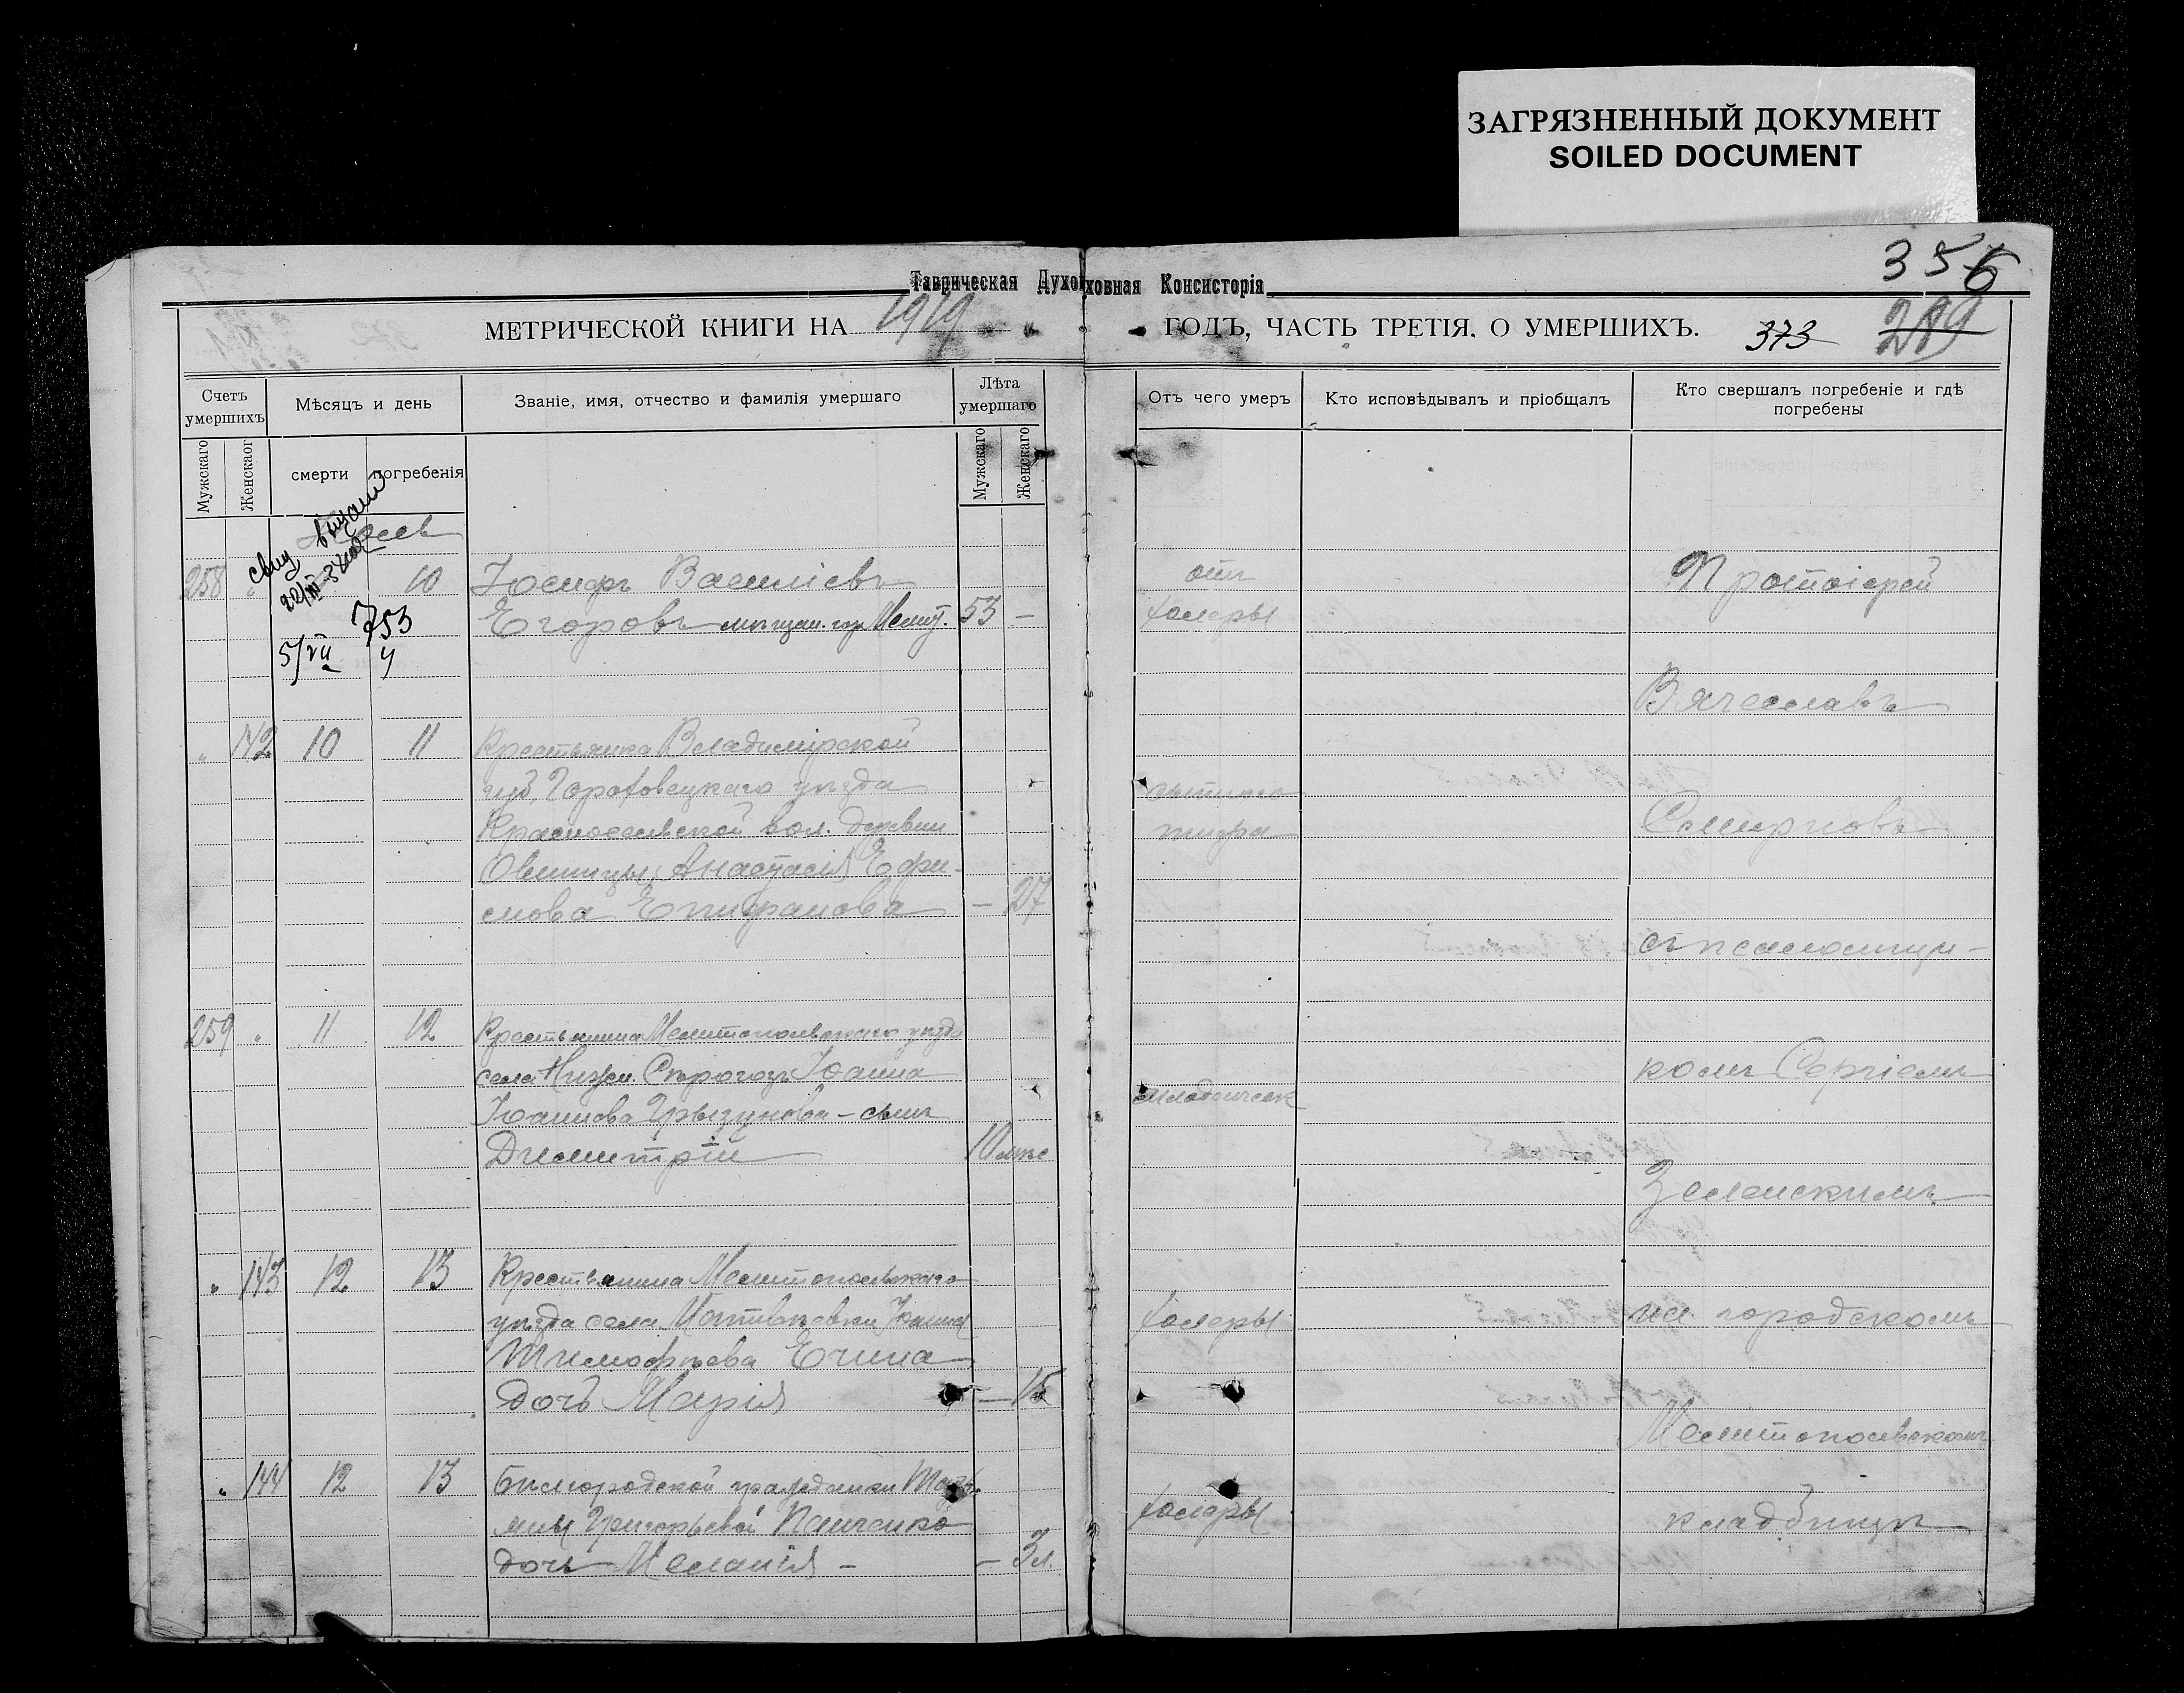 ЗАГРЯЗНЕННЫЙ ДОКУМЕНТ
SOILED DOCUMENT
356
Таврическая Духовная Консисторія
МЕТРИЧЕСКОЙ КНИГИ НА 1919 ГОДЪ, ЧАСТЬ ТРЕТІЯ, О УМЕРШИХЪ.
373 289
Счетъ умершихъ
Мѣсяцъ и день
Званіе, имя, отчество и фамилія умершаго
Лѣта умершаго
Отъ чего умеръ
Кто исповѣдывалъ и пріобщалъ
Кто свершалъ погребеніе и гдѣ погребены
Мужскаго
Женскаог
смерти
погребенія
Мужскаго
Женскаго
258 " 10 Іосифъ Васильевъ от Протоіерей
753
Егоровъ мѣщан. гор. Мелит. 53 — холеры
5/VII 4
Вячеславъ
" 142 10 11 Крестьянка Владимірской
губ. Гороховецкаго уѣзда сыпного
Красносельской вол. деревни тифа Смирновъ
Анастасія Ефи-
мова Епифанова — 27
съ псаломщи-
259 " 11 12 Крестьянина Мелитопольскаго уѣзда
села Нижн. Сѣрогозъ Іоанна комъ Сергіемъ
Іоаннова Грызунова – сынъ младенческ
Димитрій 10 мѣс
Зеленскимъ
" 143 12 13 Крестьянина Мелитопольскаго
уѣзда села Іоанна холеры на городскомъ
Тимофѣева Ечина
дочь Марія — 15
Мелитопольскомъ
" 144 12 13 гражданки
Григорьевой Панченко холеры кладбищѣ
дочь Меланія – – 3 л.